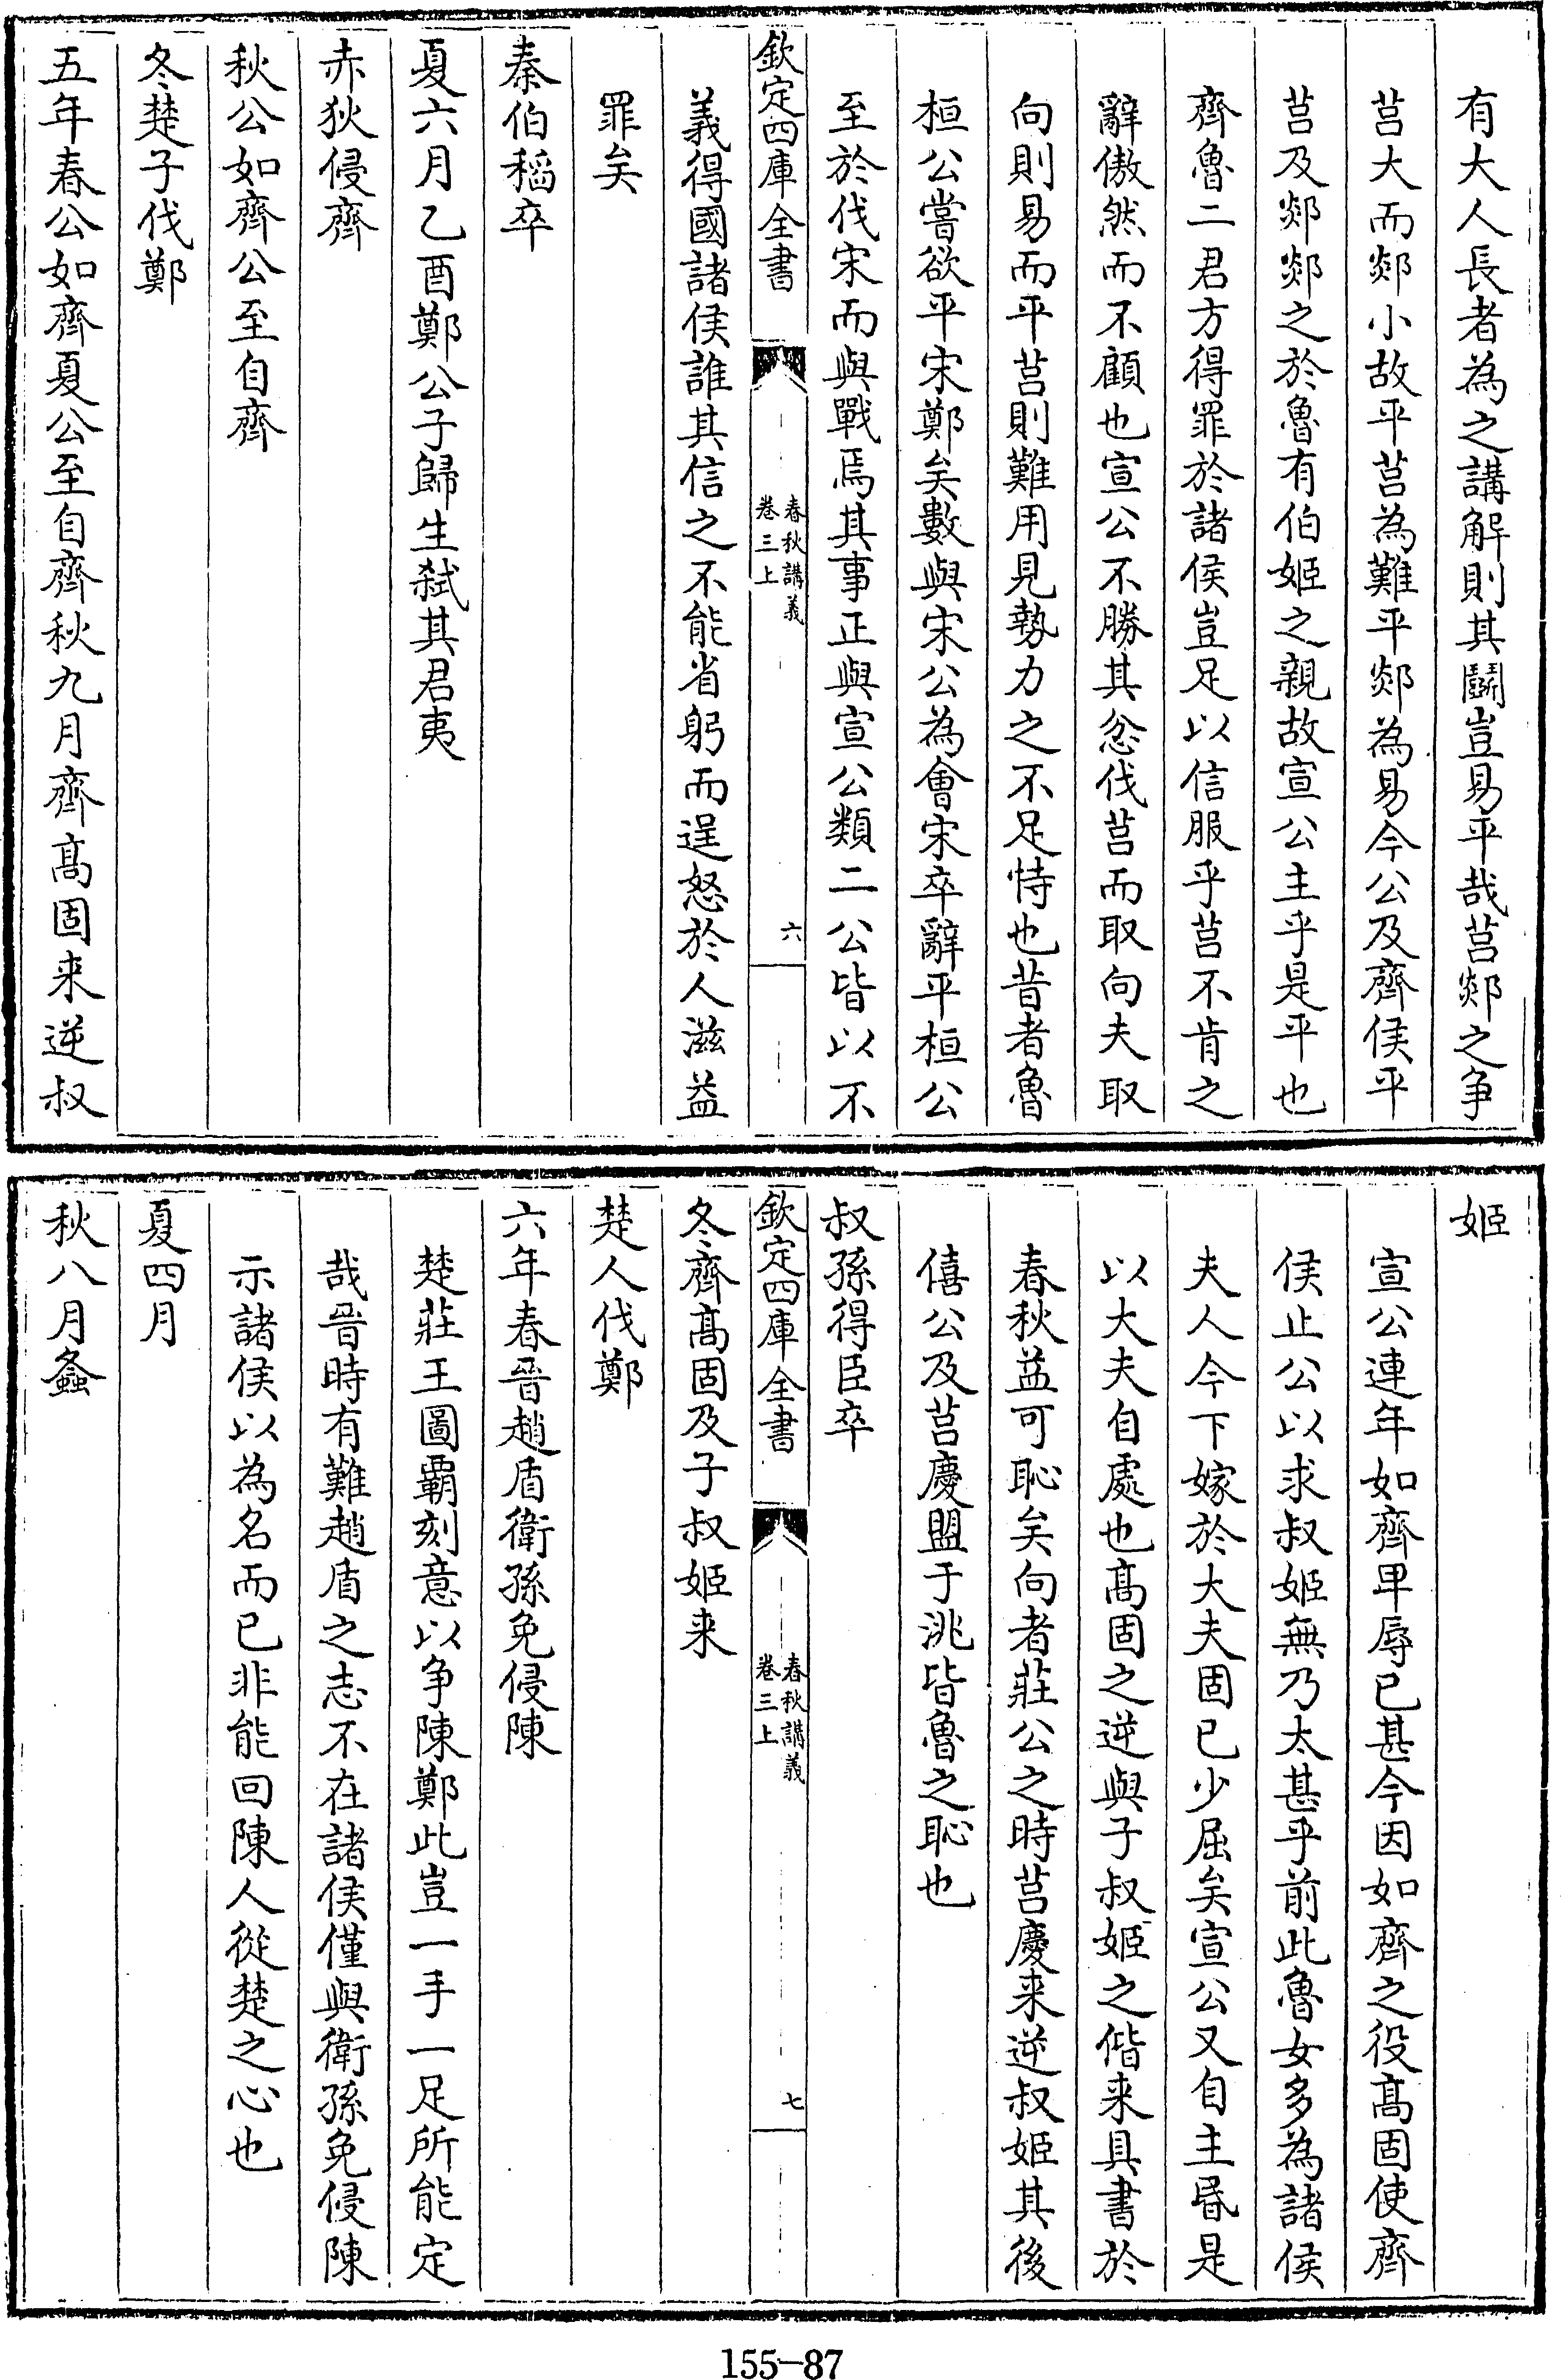 有大人長者為之講解則其鬬豈易平哉莒郯之争
莒大而郯小故平莒為難平郯為易今公及齊侯平
莒及郯郯之於魯有伯姬之親故宣公主乎是平也
齊魯二君方得罪於諸侯豈足以信服乎莒不肯之
辭傲然而不顧也宣公不勝其忿伐莒而取向夫取
向則易而平莒則難用見勢力之不足恃也昔者魯
桓公嘗欲平宋鄭矣數與宋公為會宋卒辭平桓公
至於伐宋而與戰焉其事正與宣公類二公皆以不
欽定四庫全書
春秋講義
卷三上
六
義得國諸侯誰其信之不能省躬而逞怒於人滋益
罪矣
秦伯稻卒
夏六月乙酉鄭公子歸生弑其君夷
赤狄侵齊
秋公如齊公至自齊
冬楚子伐鄭
五年春公如齊夏公至自齊秋九月齊髙固来逆叔
姬
宣公連年如齊卑辱已甚今因如齊之役髙固使齊
侯止公以求叔姬無乃太甚乎前此魯女多為諸侯
夫人今下嫁於大夫固已少屈矣宣公又自主昬是
以大夫自處也髙固之逆與子叔姬之偕来具書於
春秋益可恥矣向者莊公之時莒慶来逆叔姬其後
僖公及莒慶盟于洮皆魯之恥也
叔孫得臣卒
欽定四庫全書
春秋講義
卷三上
七
冬齊髙固及子叔姬来
楚人伐鄭
六年春晉趙盾衛孫免侵陳
楚莊王圖覇刻意以争陳鄭此豈一手一足所能定
哉晉時有難趙盾之志不在諸侯僅與衛孫免侵陳
示諸侯以為名而已非能回陳人從楚之心也
夏四月
秋八月螽
155-87